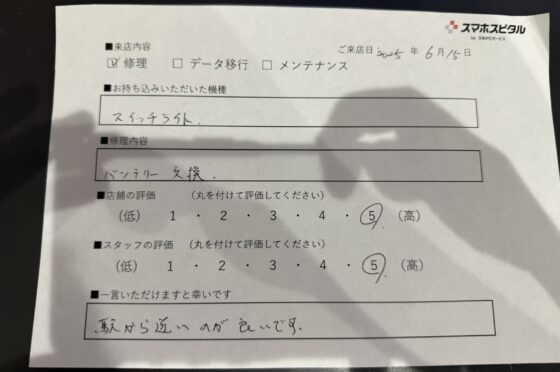 スマホスピタル
■来店内容
ご来店日 2025 年 6 月 15 日
☑ 修理 □ データ移行 □ メンテナンス
■お持ち込みいただいた機種
スイッチライト.
■修理内容
バッテリー 交換.
■店舗の評価 （丸を付けて評価してください）
（低） 1 ・ 2 ・ 3 ・ 4 ・ 5 （高）
■スタッフの評価 （丸を付けて評価してください）
（低） 1 ・ 2 ・ 3 ・ 4 ・ 5 （高）
■一言いただけますと幸いです
駅から近いのが良いです.